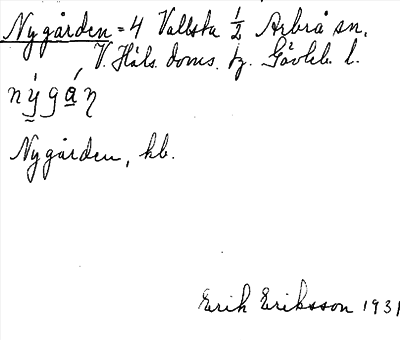 Nygården = 4 Vallsta 1/2 Arbrå sn.
V. Häls. doms. fz. Gävleb. l.
nýgáη
Nygården, kb.
Erik Eriksson 1931